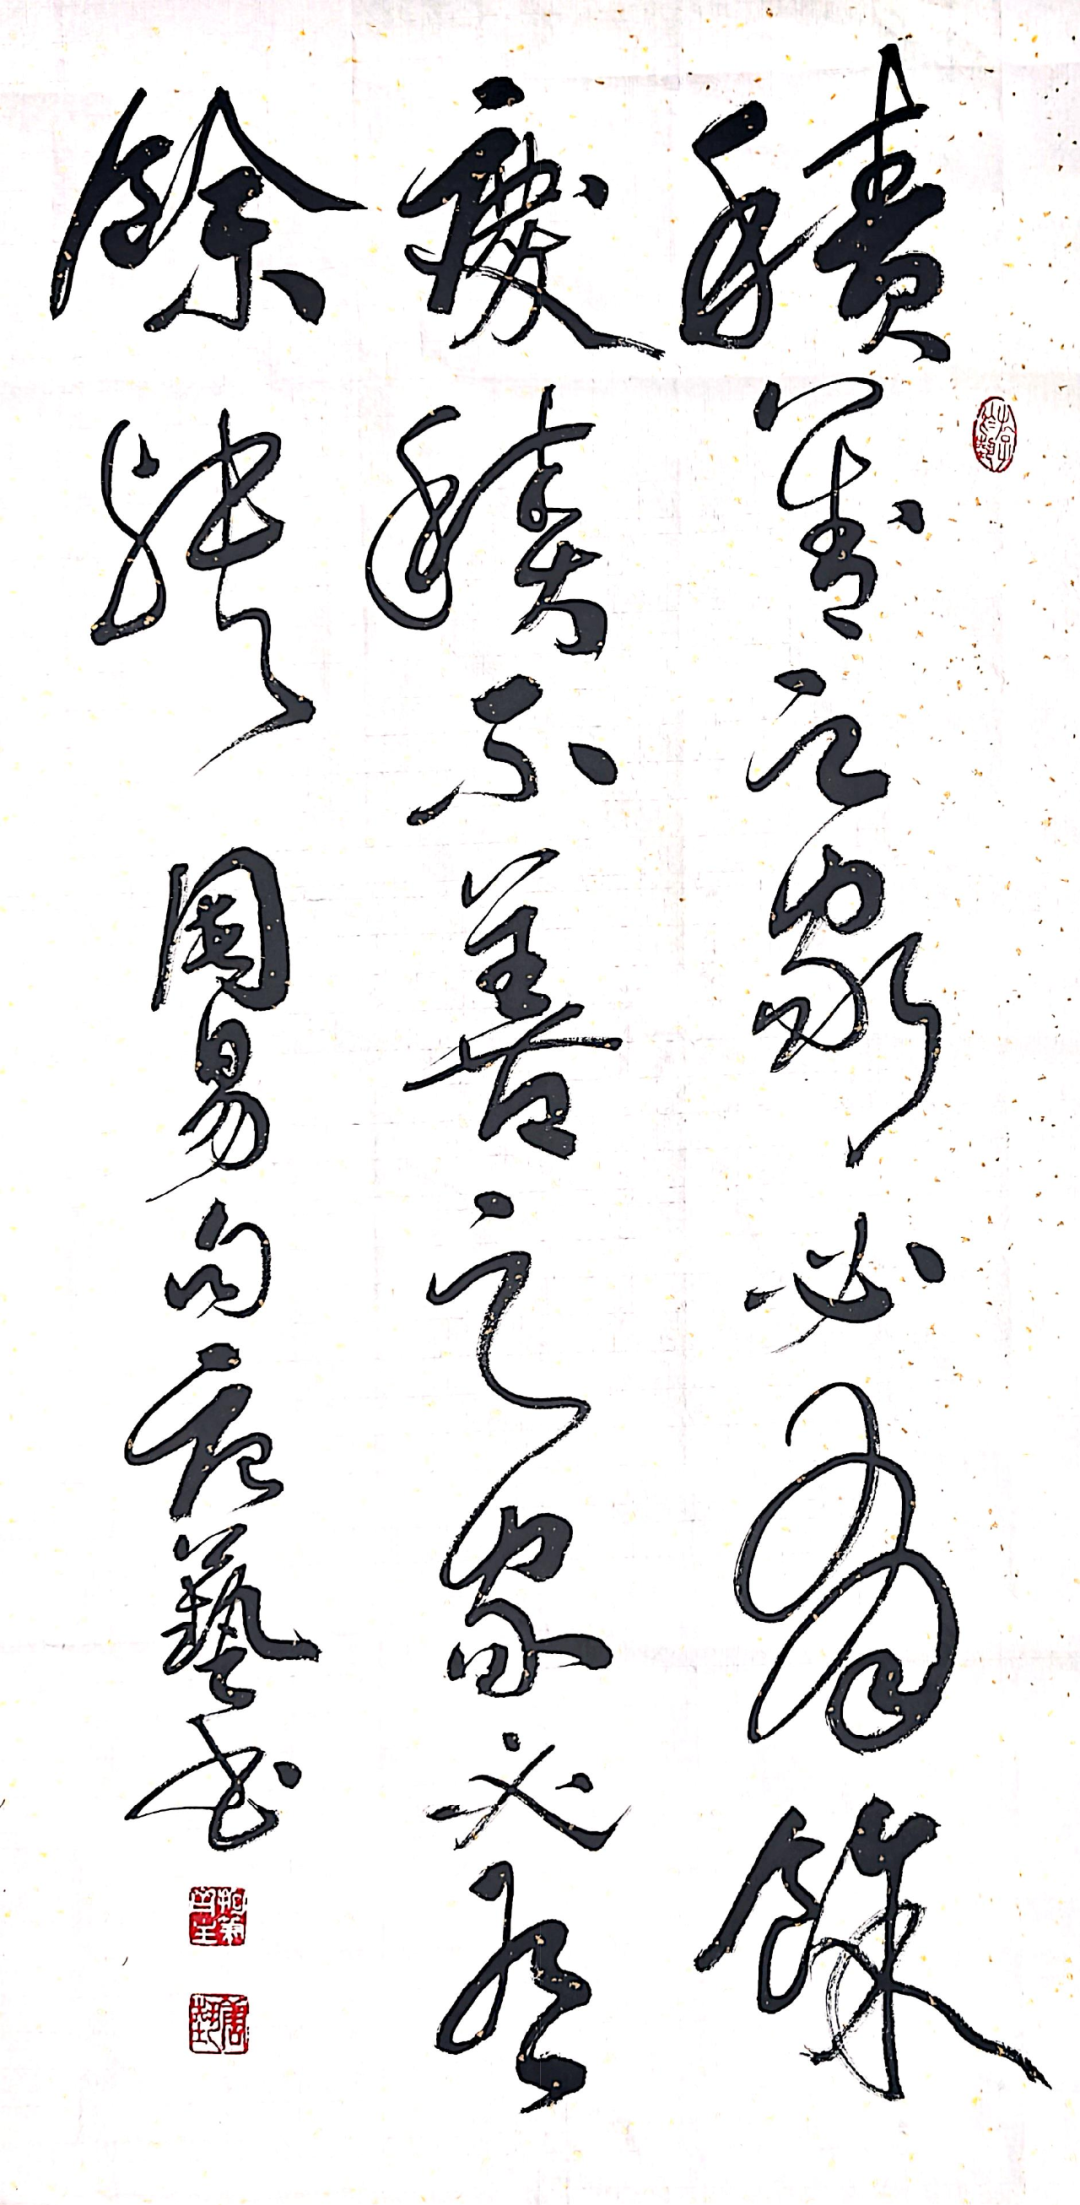 積善之家必有餘
慶積不善之家必有
餘殃 周易句唐藝书
唐藝